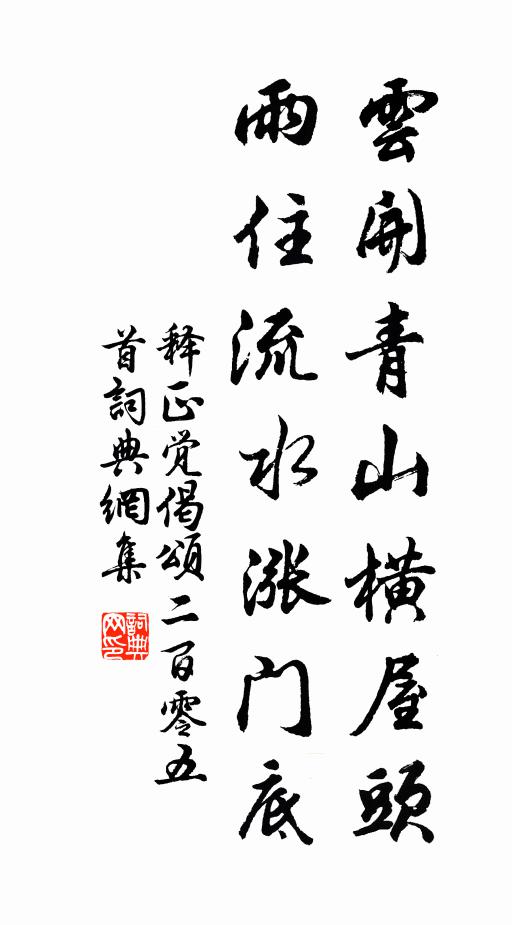 雲開青山橫屋頭
雨住流水漲门底
释正觉偈頌二百零五
首詞典網集
詞典网印